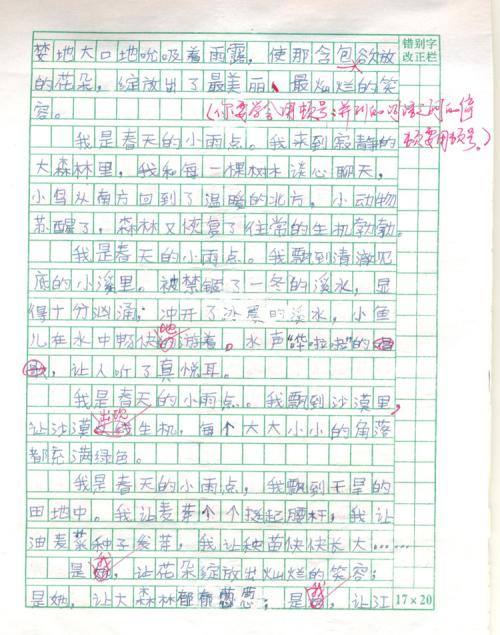 错别字
改正栏
婪地大口地吮吸着雨露，使那含包欲放
的花朵，绽放出了最美丽、最灿烂的笑
容。
(你要学会用顿号：并列的词语之间的停顿要用顿号。)
我是春天的小雨点。我来到寂静的
大森林里，我和每一棵树木谈心聊天，
小鸟从南方回到了温暖的北方，小动物
苏醒了，森林又恢复了往常的生机勃勃。
我是春天的小雨点。我飘到清澈见
底的小溪里。被禁锢了一冬的溪水，显
得十分汹涌；冲开了冰冷的溪水，小鱼
儿在水中畅快地游着。水声"哗啦啦"的
，让人听了真悦耳。
我是春天的小雨点。我飘到沙漠里，
让沙漠出现生机，每个大大小小的角落
都充满绿色。
我是春天的小雨点，我飘到干旱的
田地中。我让麦芽个个挺起腰杆，我让
油麦菜种子发芽，我让秧苗快快长大……
是我，让花朵绽放出灿烂的笑容；
是她，让大森林郁郁葱葱；是我，让江
17×20